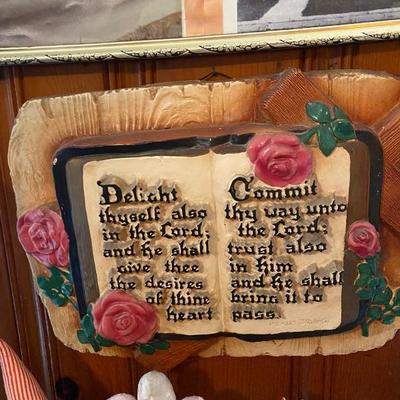 Delight
thyself also
in the Lord;
and he shall
give thee
the desires
of thine
heart
Commit
thy way unto
the Lord;
trust also
in him
and he shall
bring it to
pass.